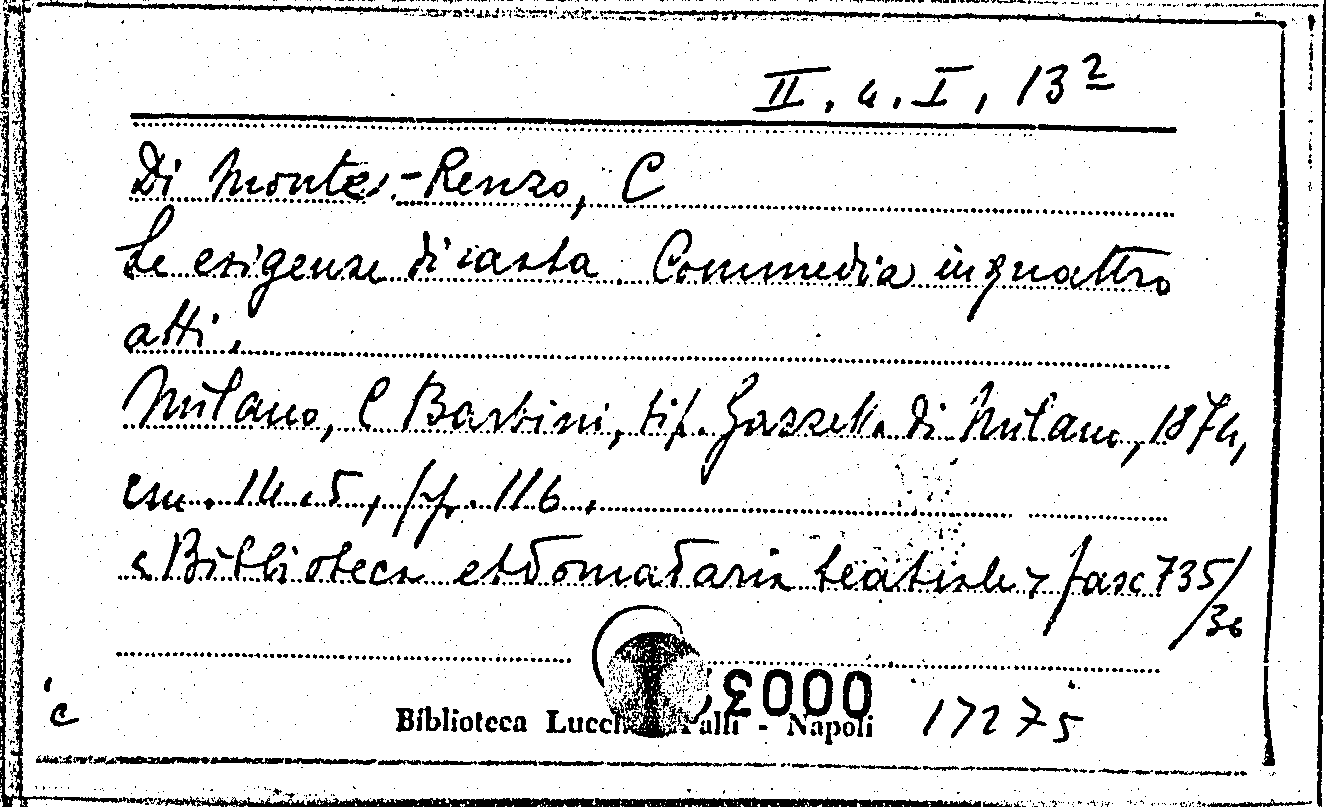 II. 4. I, 13²
Di Monte-Renzo, C
Le esigenze di casta. Commedia in quattro
atti.
Milano, C Barbini, tip. Gazzetta di Milano, 1874,
cm. 14.5, pp. 116.
«Biblioteca ebdomadaria teatrale» fasc 735/
36
0003
c
Biblioteca Lucch Palli - Napoli 17275